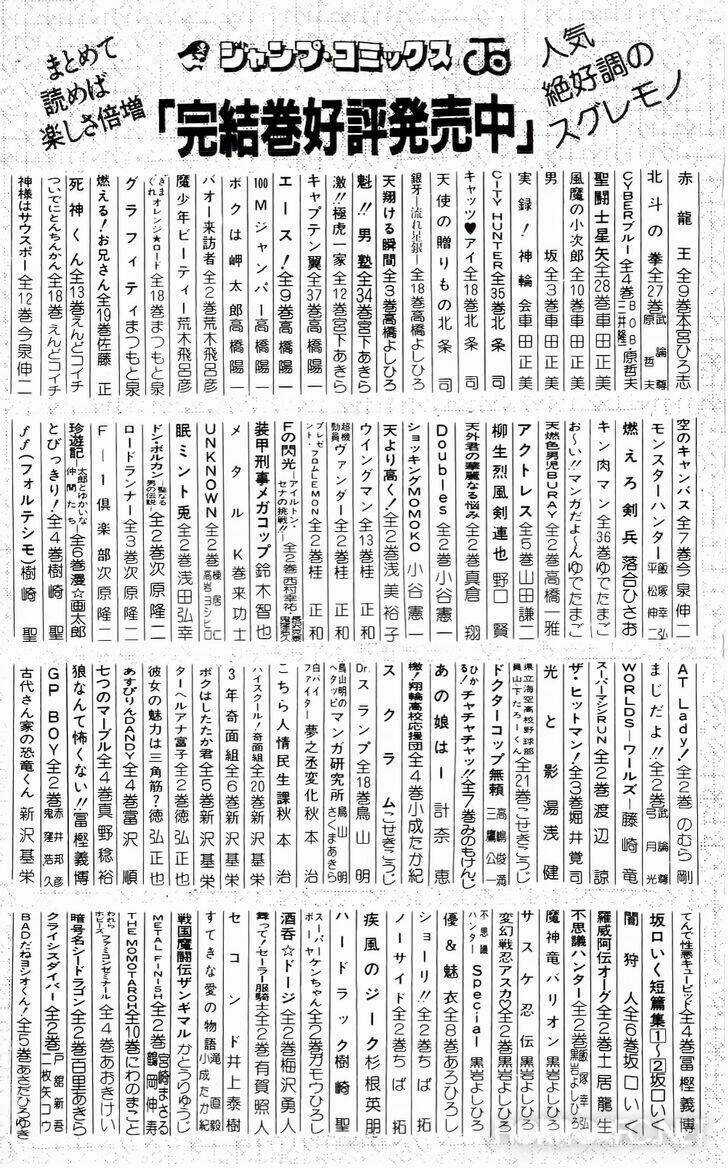 まとめて
読めば
楽しさ倍増
ジャンプ・コミックス
人気
絶好調の
スグレモノ
「完結巻好評発売中」
赤龍王 全9巻 本宮ひろ志
北斗の拳 全27巻 武論尊 原哲夫
CYBERブルー 全4巻 BOB 三井隆一 原哲夫
聖闘士星矢 全28巻 車田正美
風魔の小次郎 全10巻 車田正美
男坂 全3巻 車田正美
実録!神輪会 車田正美
CITY HUNTER 全35巻 北条司
キャッツ♥アイ 全18巻 北条司
天使の贈りもの 北条司
銀牙―流れ星銀― 全18巻 高橋よしひろ
天翔ける瞬間 全3巻 高橋よしひろ
魁!!男塾 全34巻 宮下あきら
激!!極虎一家 全12巻 宮下あきら
キャプテン翼 全37巻 高橋陽一
エース! 全9巻 高橋陽一
100Mジャンパー 高橋陽一
ボクは岬太郎 高橋陽一
バオー来訪者 全2巻 荒木飛呂彦
魔少年ビーティー 荒木飛呂彦
きまぐれオレンジ★ロード 全18巻 まつもと泉
グラフィティ まつもと泉
燃える!お兄さん 全19巻 佐藤正
死神くん 全13巻 えんどコイチ
ついでにとんちんかん 全18巻 えんどコイチ
神様はサウスポー 全12巻 今泉伸二
空のキャンバス 全7巻 今泉伸二
モンスターハンター 飯塚幸弘 平松伸二
燃えろ剣兵 落合ひさお
キン肉マン 全36巻 ゆでたまご
お〜い!!マンガだよ〜ん ゆでたまご
天燃色男児BURAY 全2巻 高橋一雅
アクトレス 全5巻 山田謙二
柳生烈風剣連也 野口賢
天外君の華麗なる悩み 全2巻 真倉翔
Doubles 全2巻 小谷憲一
ショッキングMOMOKO 小谷憲一
天より高く! 全2巻 浅美裕子
ウイングマン 全13巻 桂正和
超機動員ヴァンダー 全2巻 桂正和
プレゼント・フロムLEMON 全2巻 桂正和
Fの閃光―アイルトン・セナの挑戦!!― 全2巻 西村幸祐
装甲刑事メガコップ 鈴木智也
メタルK 巻来功士
UNKNOWN 全2巻 高岩ヨシヒロ
眠ミント兎 全2巻 浅田弘幸
ドン・ボルカン―聖なる男の伝説― 全2巻 次原隆二
ロードランナー 全3巻 次原隆二
F―1倶楽部 次原隆二
珍遊記―太郎とゆかいな仲間たち― 全6巻 漫☆画太郎
とびっきり! 全4巻 樹崎聖
ff(フォルテシモ) 樹崎聖
AT Lady! 全2巻 のむら剛
まじだよ!! 全2巻 武論尊 弓月光
WORLDS―ワールズ― 藤崎竜
スーパーマシンRUN 全2巻 渡辺諒
ザ・ヒットマン! 全3巻 堀井覚司
光と影 湯浅健
県立海空高校野球部員山下たろーくん 全21巻 こせきこうじ
ドクターコップ無頼 高嶋俊満 三鷹公一
ひかる!チャチャチャッ!! 全7巻 みのもけんじ
あの娘は! 計奈恵
檄!翔輪高校応援団 全4巻 小成たか紀
スクラム こせきこうじ
Dr.スランプ 全18巻 鳥山明
鳥山明のヘタッピマンガ研究所 鳥山明 さくまあきら
白バイファイター 夢之丞変化 秋本治
こちら人情民生課 秋本治
ハイスクール!奇面組 全20巻 新沢基栄
3年奇面組 全6巻 新沢基栄
ボクはしたたか君 全5巻 新沢基栄
ターヘルアナ富子 全2巻 徳弘正也
彼女の魅力は三角筋? 徳弘正也
あすびりんDANDY 全4巻 富沢順
七つのマーブル 全4巻 真野稔裕
狼なんて怖くない!! 冨樫義博
GP BOY 全2巻 赤井邦彦 鬼窪浩久
古代さん家の恐竜くん 新沢基栄
てんで性悪キューピッド 全4巻 冨樫義博
坂口いく短篇集1〜2 坂口いく
闇狩人 全6巻 坂口いく
羅威阿伝オーグ 全2巻 土居龍生
不思議ハンター 全2巻 飯塚幸弘 黒岩よしひろ
魔神竜バリオン 黒岩よしひろ
サスケ忍伝 黒岩よしひろ
変幻戦忍アスカ 全2巻 黒岩よしひろ
不思議ハンターSpecial 黒岩よしひろ
優&魅衣 全8巻 あろひろし
ショーリ!! 全2巻 ちば拓
ノーサイド 全2巻 ちば拓
疾風のジーク 杉根英朋
ハードラック 樹崎聖
スーパーヤケンちゃん 全2巻 ガモウひろし
酒呑☆ドージ 全2巻 梅沢勇人
舞って!セーラー服騎士 全2巻 有賀照人
セコンド 井上泰樹
すてきな愛の物語 滝直毅 小成たか紀
戦国魔闘伝ザンギマル かとうりゅうじ
METAL FINISH 全2巻 宮崎まさる 鶴岡伸寿
THE MOMOTAROH 全10巻 にわのまこと
われらホビーズファミコンゼミナール 全4巻 あおきけい
暗号名シードラゴン 全2巻 百里あきら
クライシスダイバー 全2巻 戸舘新吾 二枚矢コウ
BADだねヨシオくん! 全5巻 あさだひろゆき